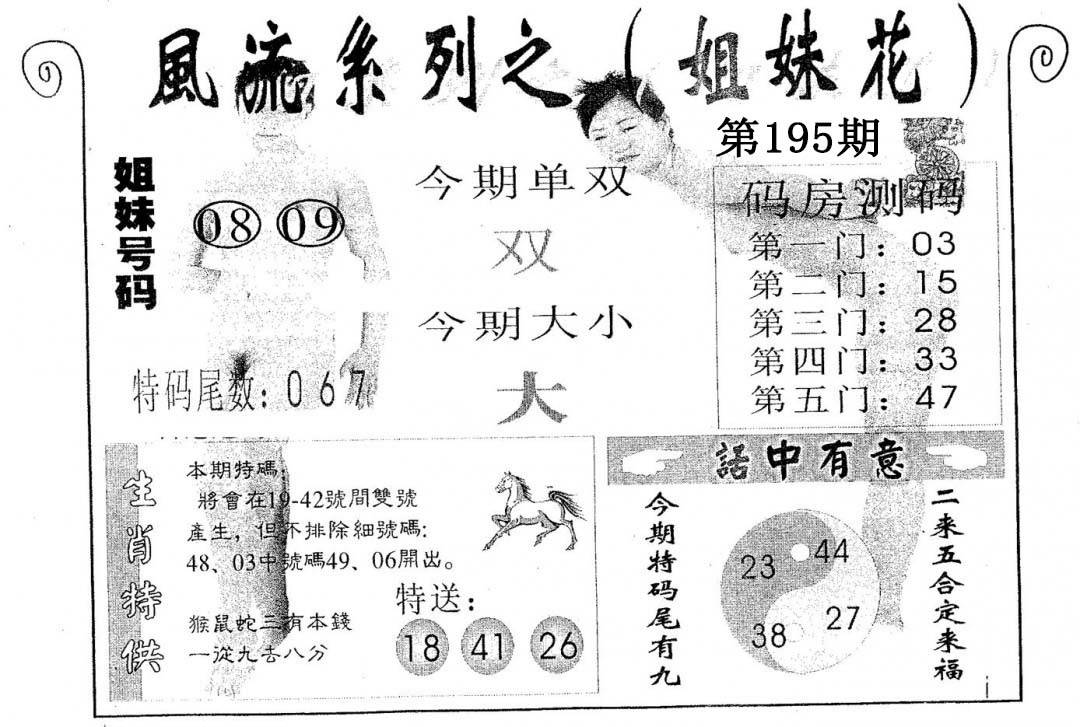 風流系列之（姐妹花）
第195期
姐妹号码
08 09
特码尾数：067
今期单双
双
今期大小
大
码房测码
第一门：03
第二门：15
第三门：28
第四门：33
第五门：47
生肖特供
本期特碼：
將會在19-42號間雙號
產生，但不排除細號碼：
48、03中號碼49、06開出。
猴鼠蛇三有本錢
一從九去八分
特送：
18 41 26
話中有意
今期特码尾有九
23 44
38 27
二来五合定来福